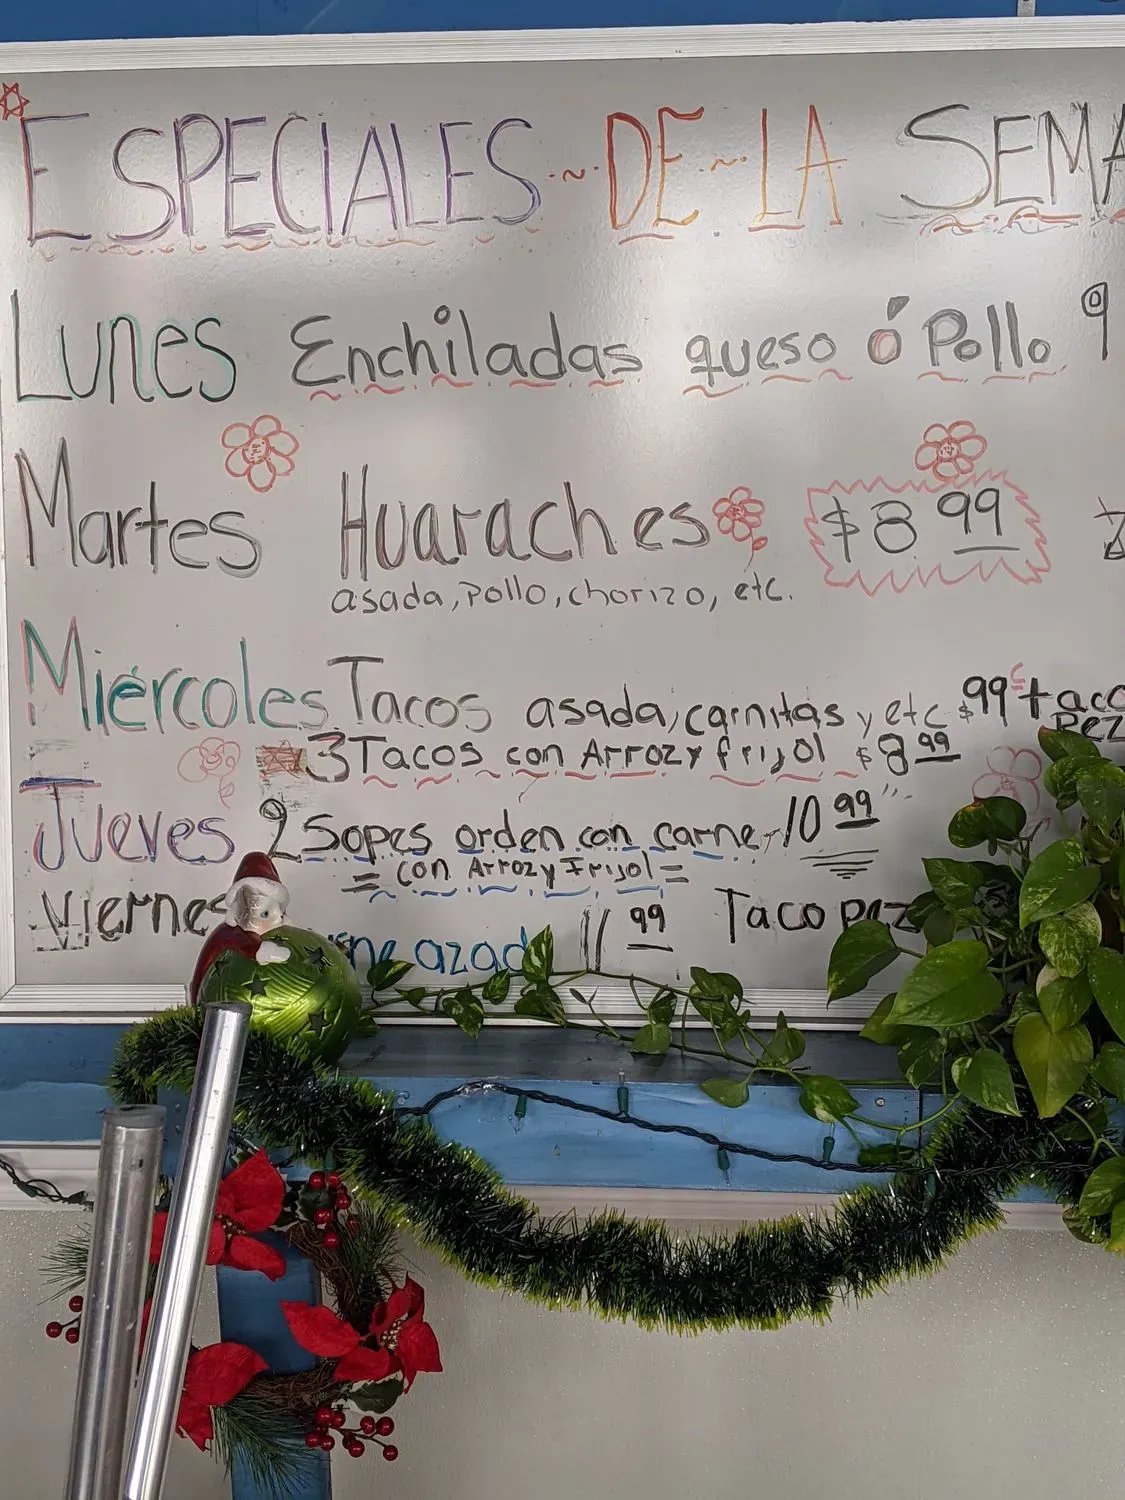 ESPECIALES ~ DE ~ LA SEMA
Lunes Enchiladas queso ó Pollo 9
Martes Huaraches $8.99
asada, pollo, chorizo, etc.
Miércoles Tacos asada, carnitas y etc $.99¢ taco
Pez
3 Tacos con Arroz y frijol $8.99
Jueves 2 Sopes orden con carne 10.99
= con Arroz y Frijol =
Viernes azad 11.99 Taco pez